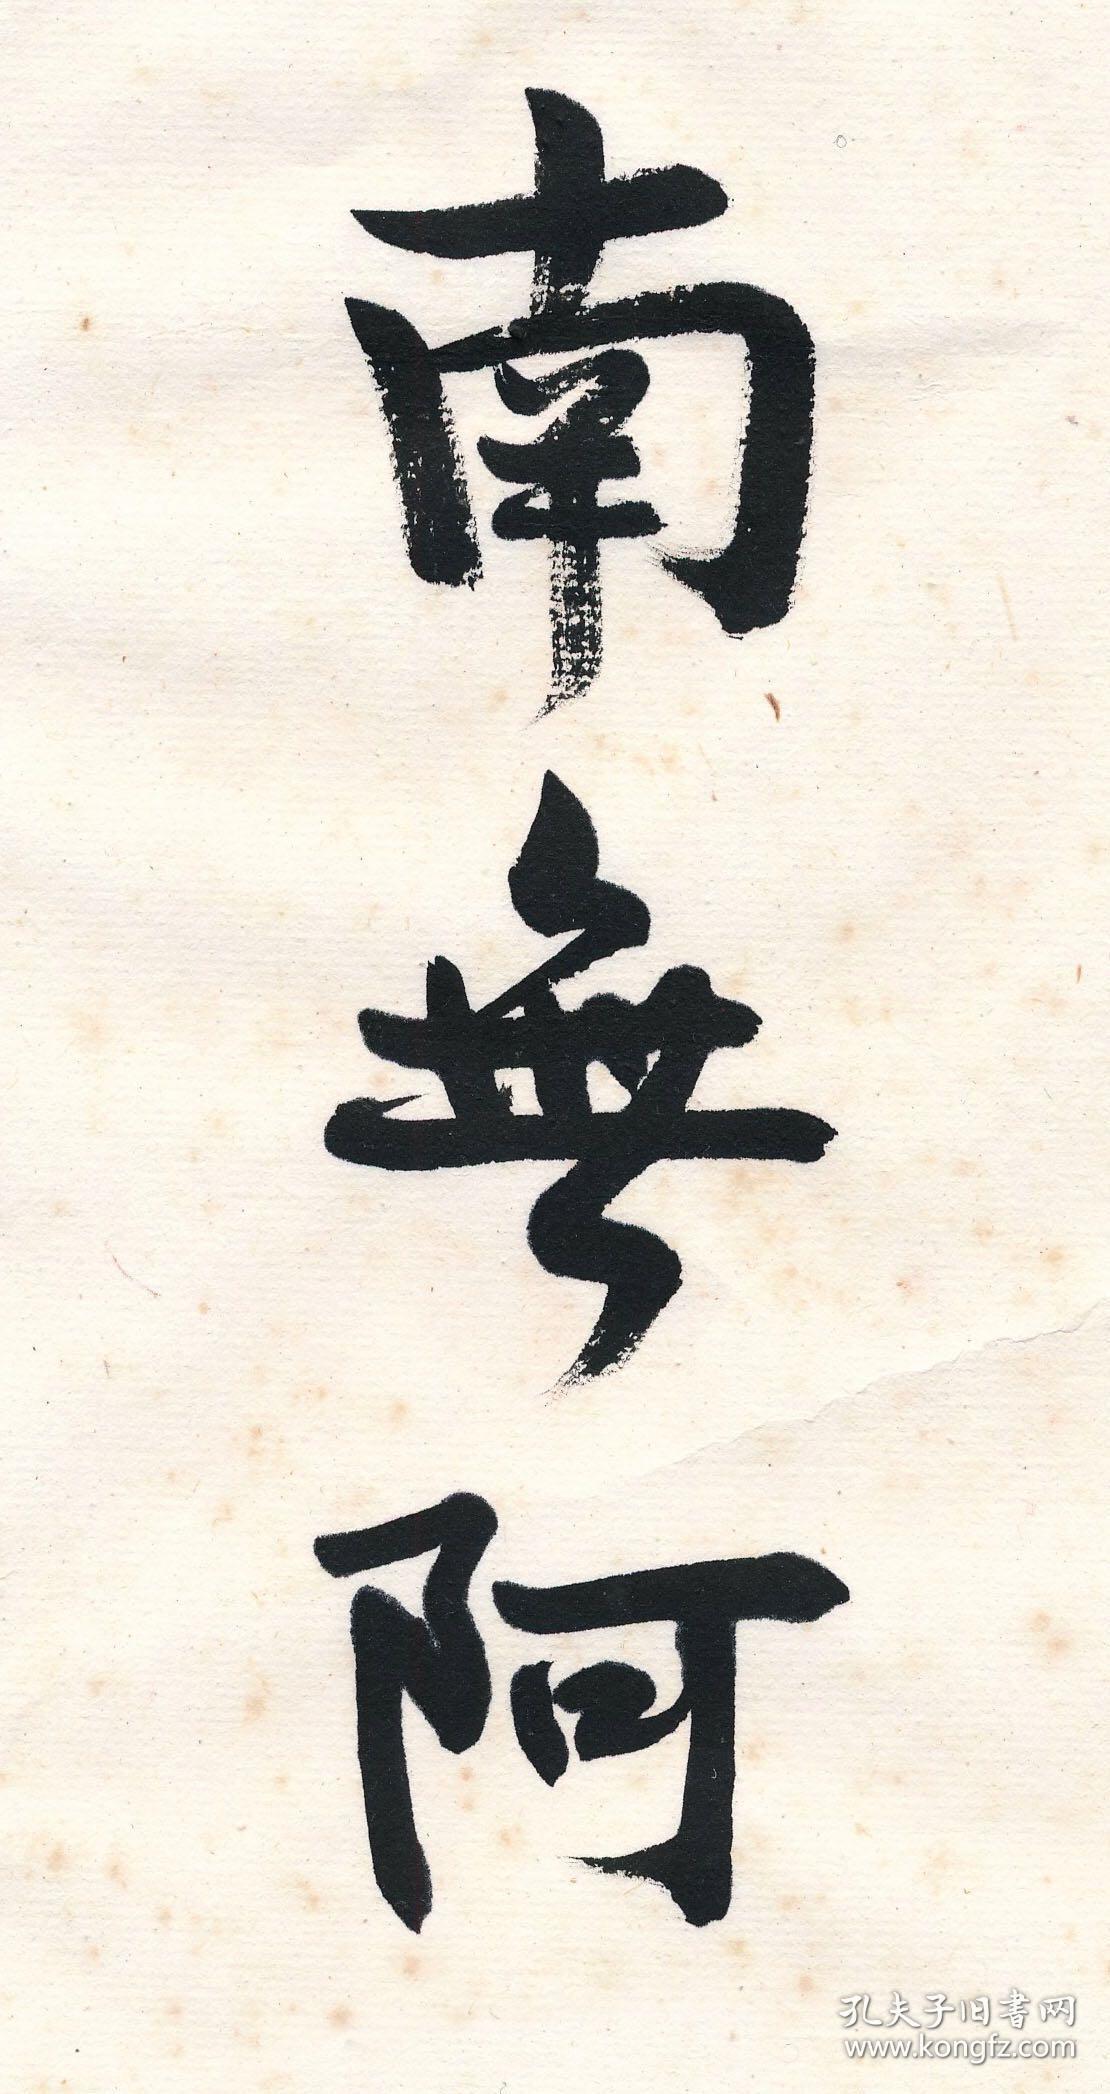 南無阿
孔夫子旧書网
www.kongfz.com